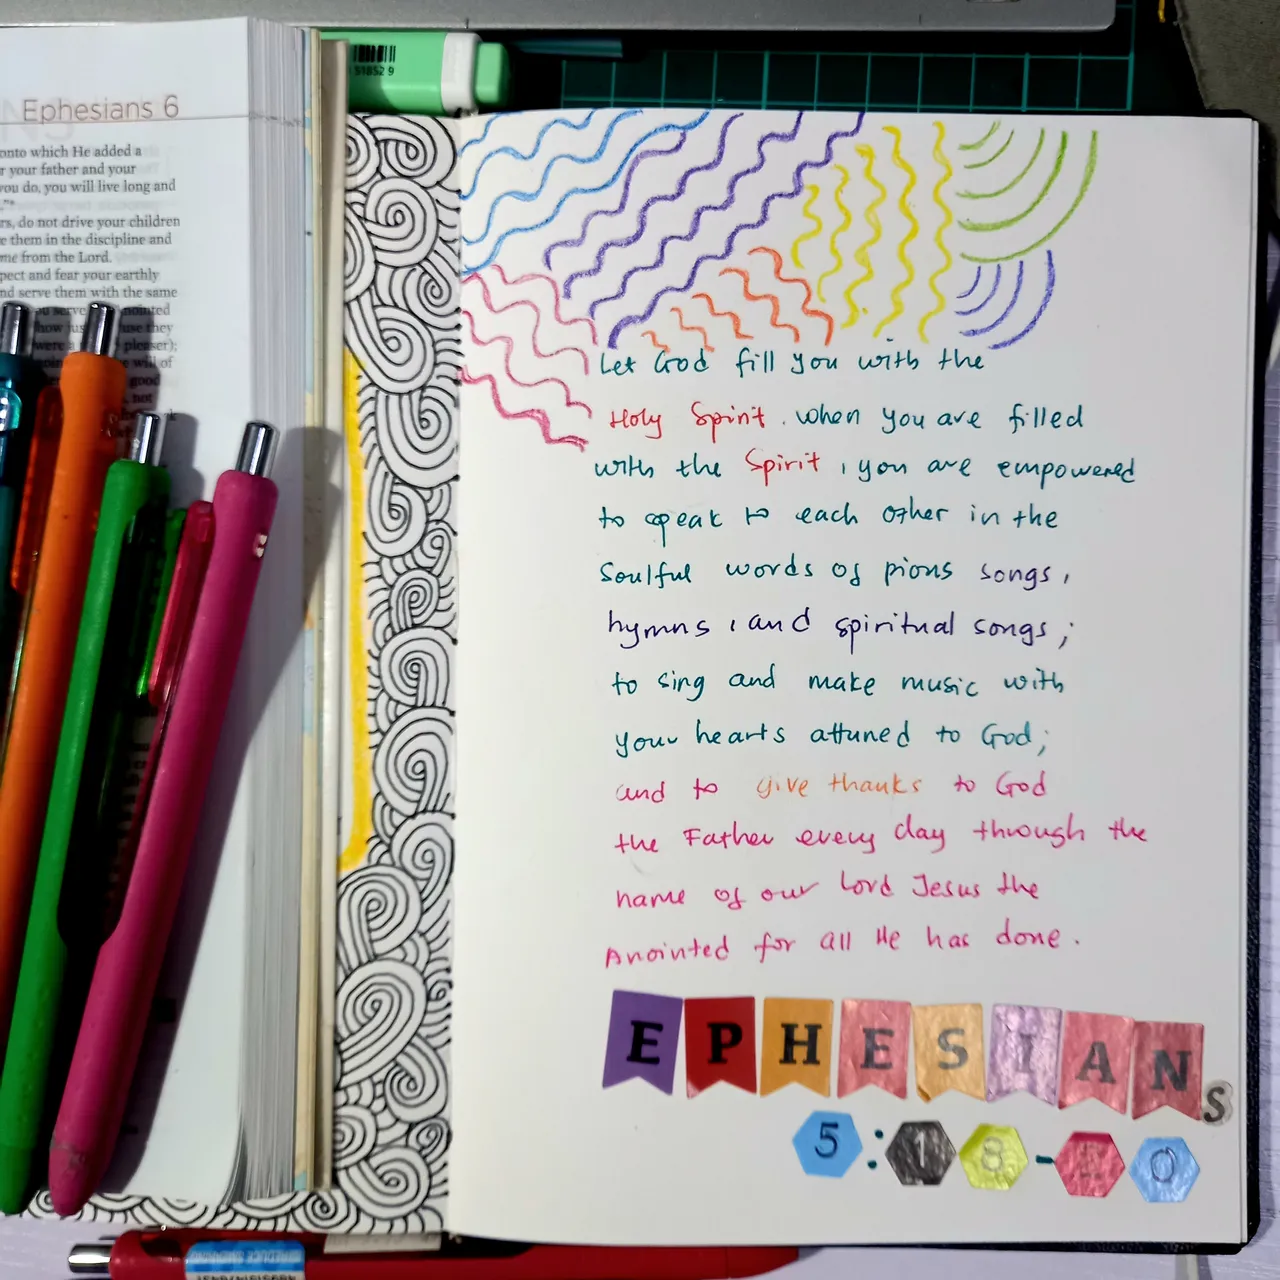 51852 9
Ephesians 6
onto which He added a
your father and your
you do, you will live long and
do not drive your children
them in the discipline and
from the Lord.
and fear your earthly
serve them with the same
they
pleaser);
will of
good
not
Let God fill you with the
Holy Spirit. When you are filled
with the Spirit, you are empowered
to speak to each other in the
soulful words of pious songs,
hymns, and spiritual songs;
to sing and make music with
your hearts attuned to God;
and to give thanks to God
the Father every day through the
name of our Lord Jesus the
Anointed for all He has done.
EPHESIANS
5:18-20